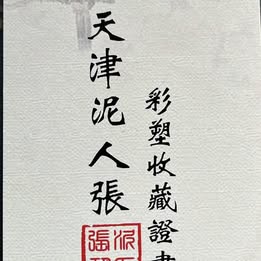 天津泥人張
彩塑收藏證書